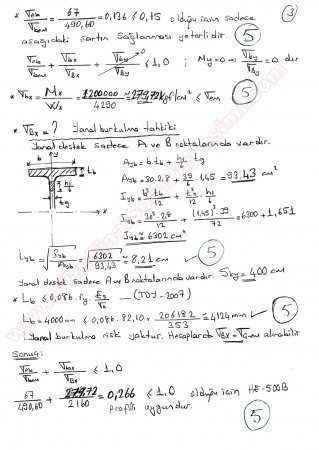 * σeb/σbem = 67/490,60 = 0,136 ≤ 0,15 olduğu için sadece (3)
aşağıdaki şartın sağlanması yeterlidir. (5)
σeb/σbem + σbx/σBx + σby/σBy ≤ 1,0 ; My=0 ⇒ σby/σBy = 0 dır
* σbx = Mx/Wx = 1200000/4290 = 279,72 kgf/cm² ≤ σem (5)
* σBx = ? Yanal burkulma tahkiki
Yanal destek sadece A ve B noktalarında vardır.
Ayb = b.tb + h/6 . tg
Ayb = 30.2,8 + 39/6 . 1,45 = 93,43 cm²
Iyb = b³.tb/12 + tg³/12 . h/6
Iyb = 30³.2,8/12 + (1,45)³.39/72 = 6300 + 1,651
Iyb ≅ 6302 cm⁴
iyb = √Iyb/Ayb = √6302/93,43 = 8,21 cm (5)
Yanal destek sadece A ve B noktalarında vardır. Sky = 400 cm
* Lb ≤ 0,086. ry. Es/σa — (TDY-2007)
Lb = 4000mm ≤ 0,086. 82,10. 206182/353 = 4124mm ✓ (5)
Yanal burkulma riski yoktur. Hesaplarda σBx = σem alınabilir
Sonuç:
σeb/σbem + σbx/σBx ≤ 1,0
67/490,60 + 279,72/2160 = 0,266 ≤ 1,0 olduğu için HE-500B
profili uygundur. (5)